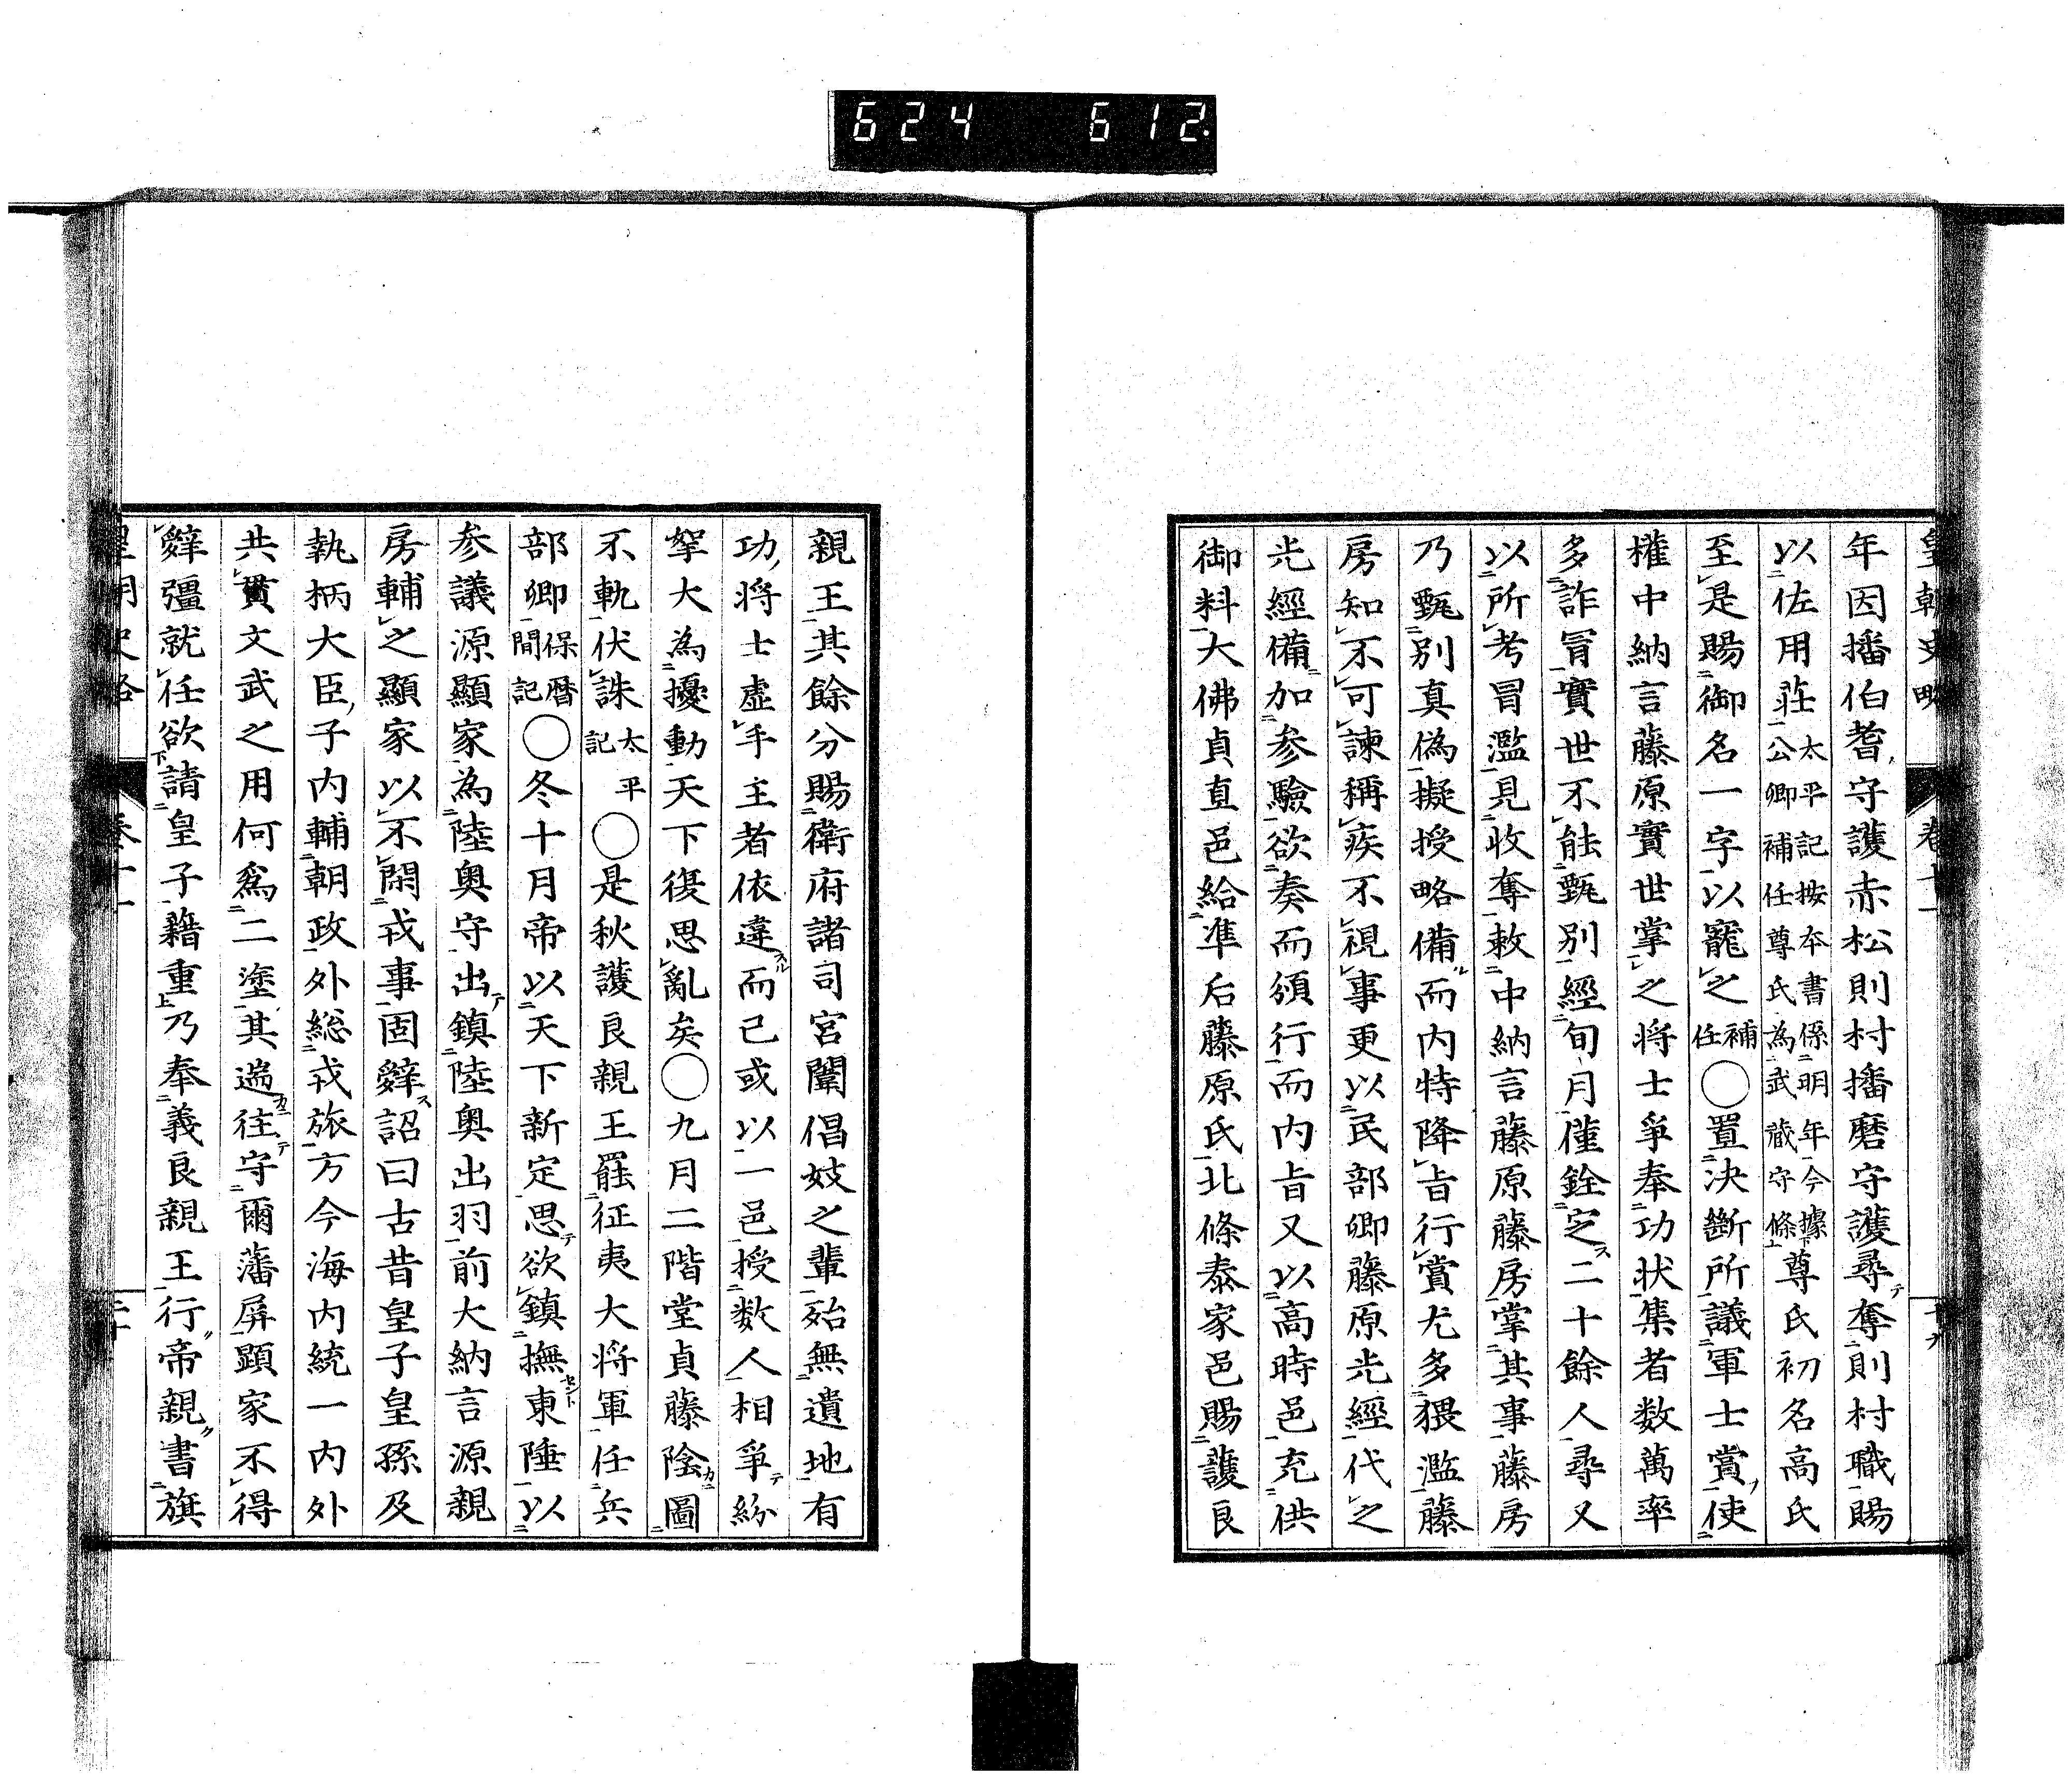 624 612
皇朝史略 卷十一 十九
年因播伯耆守護赤松則村播磨守護尋奪則村職賜
以佐用莊太平記按本書係明年今據公卿補任尊氏為武藏守條尊氏初名高氏
至是賜御名一字以寵之補任〇置決斷所議軍士賞使
權中納言藤原實世掌之將士爭奉功狀集者数萬率
多詐冒實世不能甄別經旬月僅銓定二十餘人尋又
以所考冒濫見收奪敕中納言藤原藤房掌其事藤房
乃甄別真偽擬授略備而内特降旨行賞尤多猥濫藤
房知不可諫稱疾不視事更以民部卿藤原光經代之
光經備加參驗欲奏而頒行而内旨又以高時邑充供
御料大佛貞直邑給准后藤原氏北條泰家邑賜護良
親王其餘分賜衛府諸司宮闈倡妓之輩殆無遺地有
功將士虛手主者依違而已或以一邑授数人相爭紛
拏大為擾動天下復思亂矣〇九月二階堂貞藤陰圖
不軌伏誅太平記〇是秋護良親王罷征夷大将軍任兵
部卿保暦間記〇冬十月帝以天下新定思欲鎮撫東陲以
参議源顯家為陸奥守出鎮陸奥出羽前大納言源親
房輔之顯家以不閑戎事固辭詔曰古昔皇子皇孫及
執柄大臣子内輔朝政外総戎旅方今海内統一内外
共貫文武之用何為二塗其遄往守爾藩屏顕家不得
辭彊就任欲請皇子藉重乃奉義良親王行帝親書旗
皇朝史略 卷十一 二十